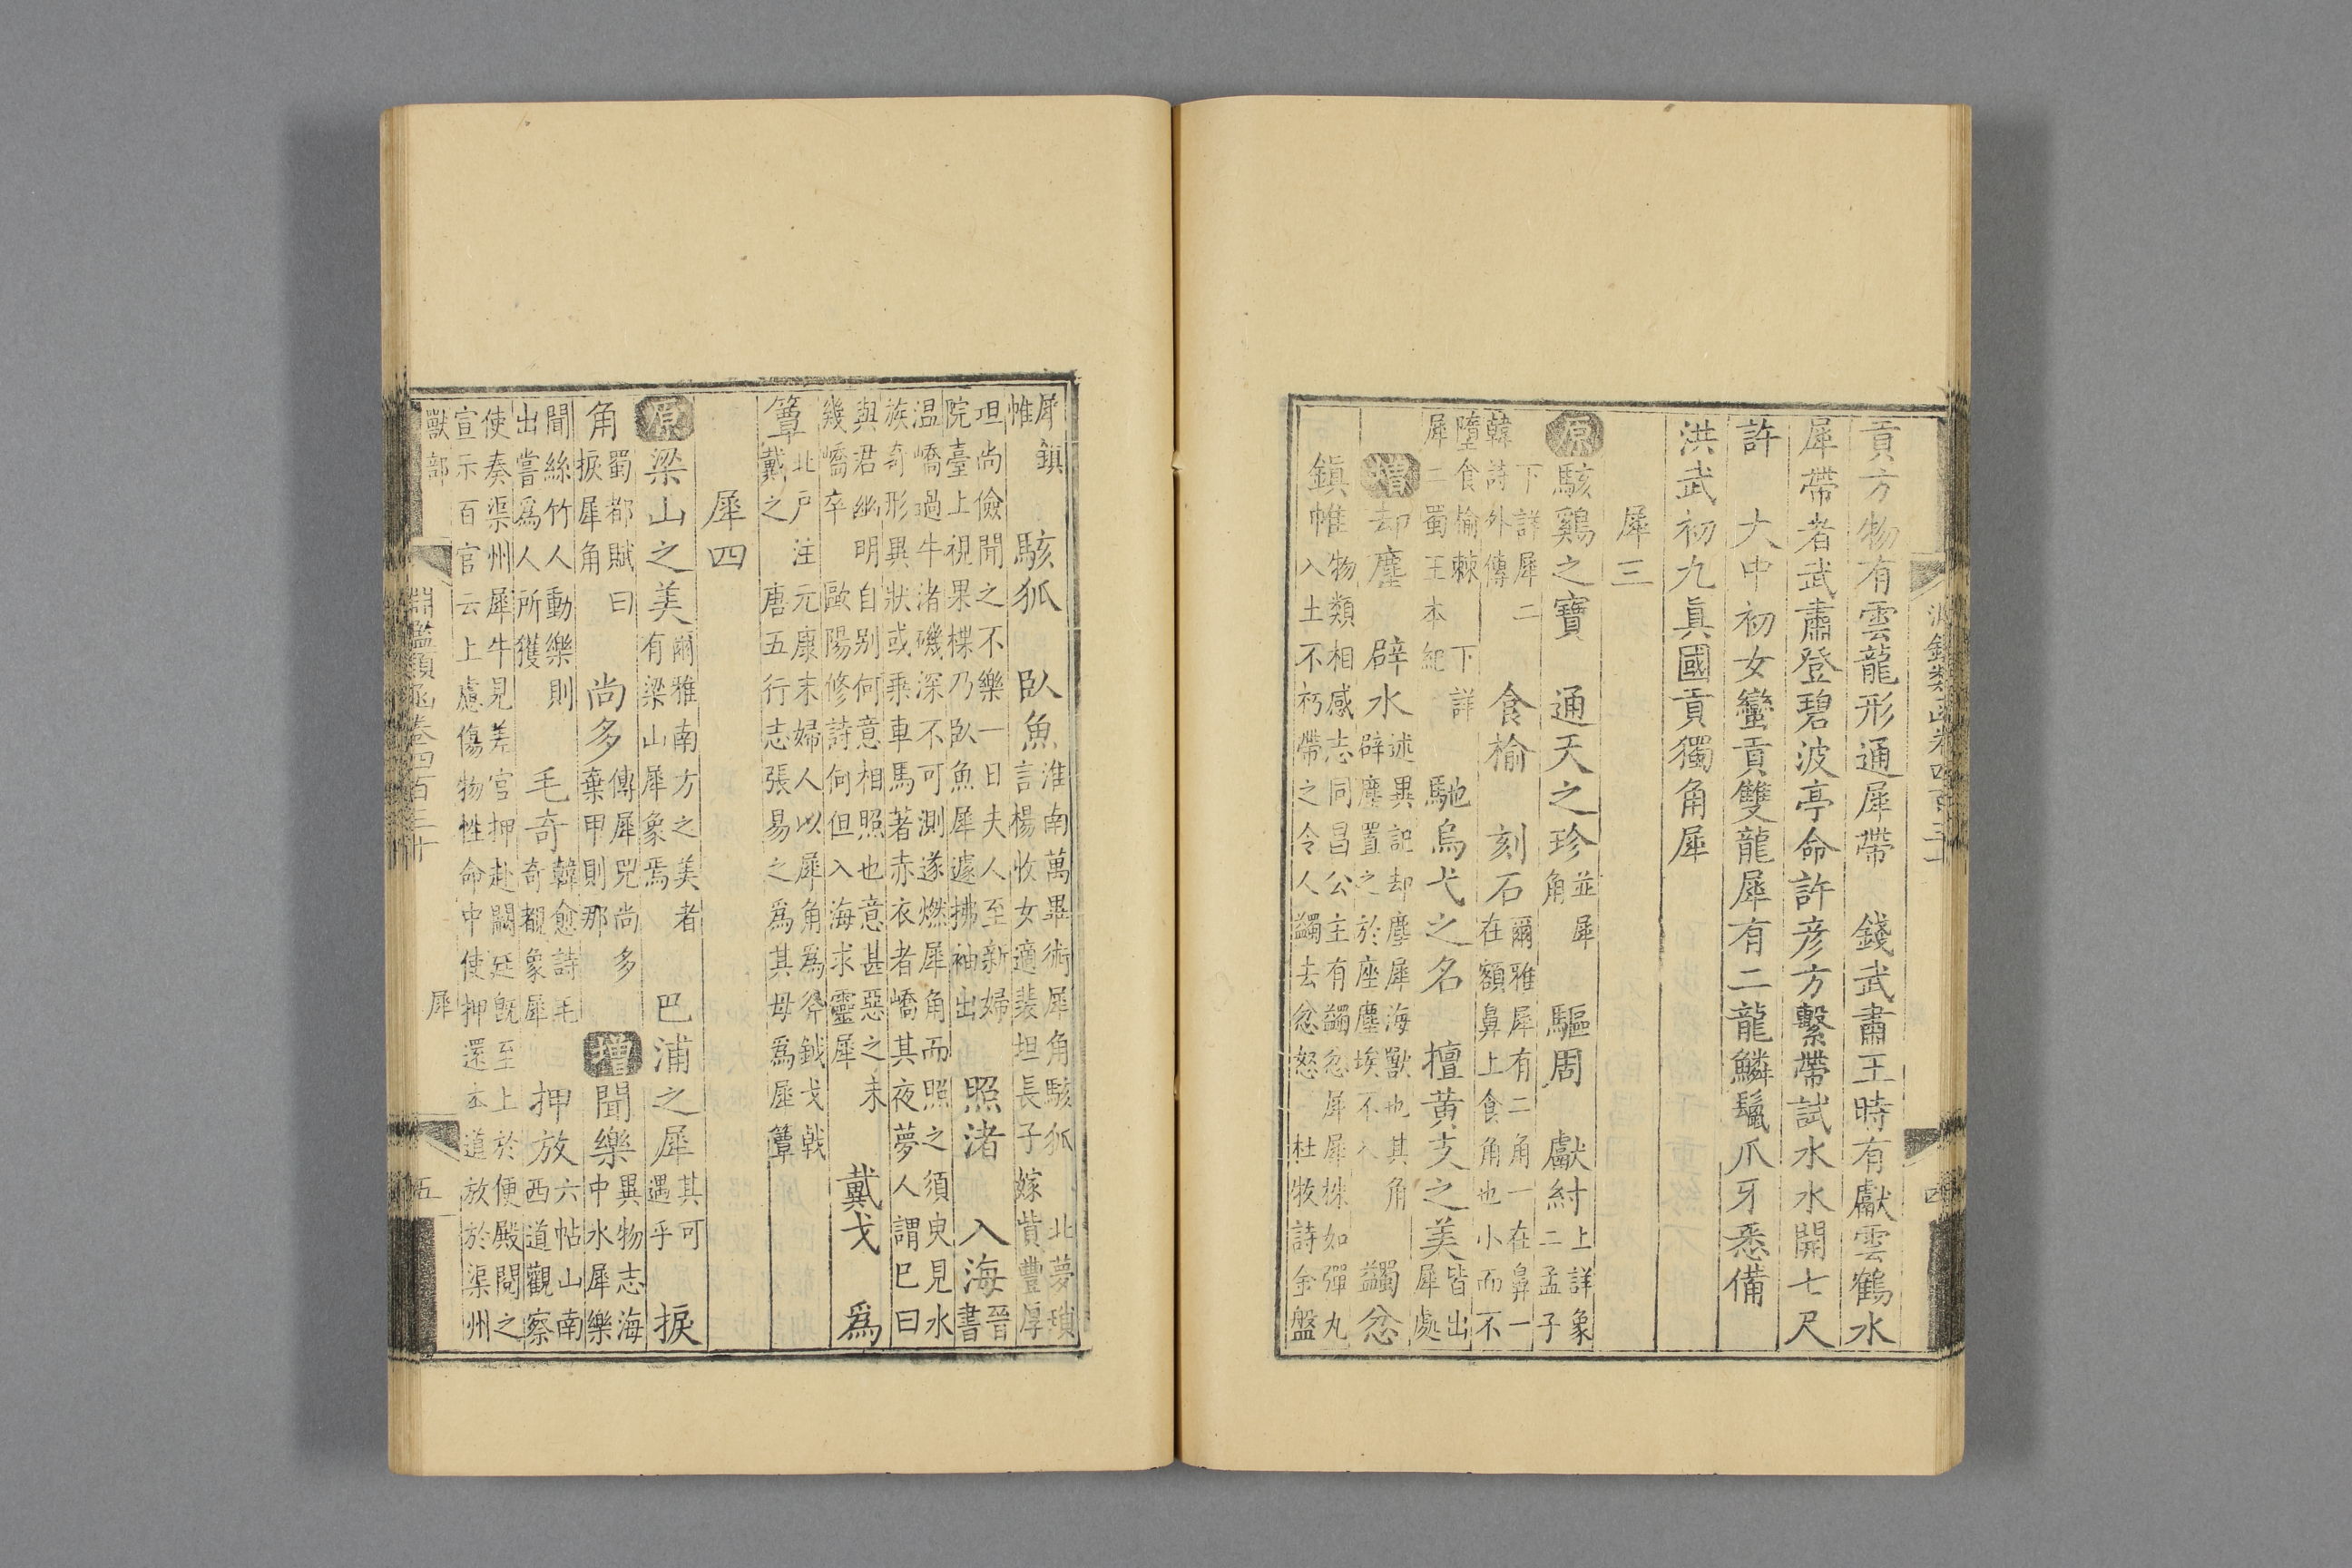 貢方物有雲龍形通犀帶　錢武肅王時有獻雲鶴水
犀帶者武肅登碧波亭命許彦方繫帶試水水開七尺
許　大中初女蠻貢雙龍犀有二龍鱗鬛爪牙悉備
洪武初九眞國貢獨角犀
犀三
原駭鷄之寶下詳犀二　通天之珍並犀角　驅周　獻紂上詳象二孟子
韓詩外傳　食榆　刻石爾雅犀有二角一在鼻一在額鼻上食角也小而不
墮食榆棘下詳犀二蜀王本紀　馳烏弋之名　擅黃支之美皆出犀處
增却塵　辟水述異記却塵犀海獸也其角辟塵置之於座塵埃不入　蠲忿
鎮帷物類相感志同昌公主有蠲忿犀犀株如彈丸入土不朽帶之令人蠲去忿怒　杜牧詩金盤
犀鎮帷　駭狐　臥魚淮南萬畢術犀角駭狐　北夢瑣言楊收女適裴坦長子嫁貲豐厚
坦尚儉聞之不樂一日夫人至新婦院臺上視果楪乃臥魚犀遽拂袖出　照渚　入海晉書
温嶠過牛渚磯深不可測遂燃犀角而照之須臾見水族奇形異狀或乘車馬著赤衣者嶠其夜夢人謂巳曰
與君幽明自别何意相照也意甚惡之未幾嶠卒　歐陽修詩何但入海求靈犀　戴戈　爲
簟北戸注元康末婦人以犀角爲斧鉞戈戟戴之　唐五行志張易之爲其母爲犀簟
犀四
原梁山之美爾雅南方之美者有梁山犀象焉　巴浦之犀其可遇乎　捩
角蜀都賦曰捩犀角　尚多傳犀兕尚多棄甲則那　增聞樂異物志海中水犀樂
聞絲竹人動樂則出嘗爲人所獲　毛奇韓愈詩毛奇覩象犀　押放六帖山南西道觀察
使奏渠州犀牛見差官押赴闕廷旣至上於便殿閱之宣示百官云上慮傷物性命中使押還本道放於渠州
獸部　犀
淵鑑類函卷四百三十　五